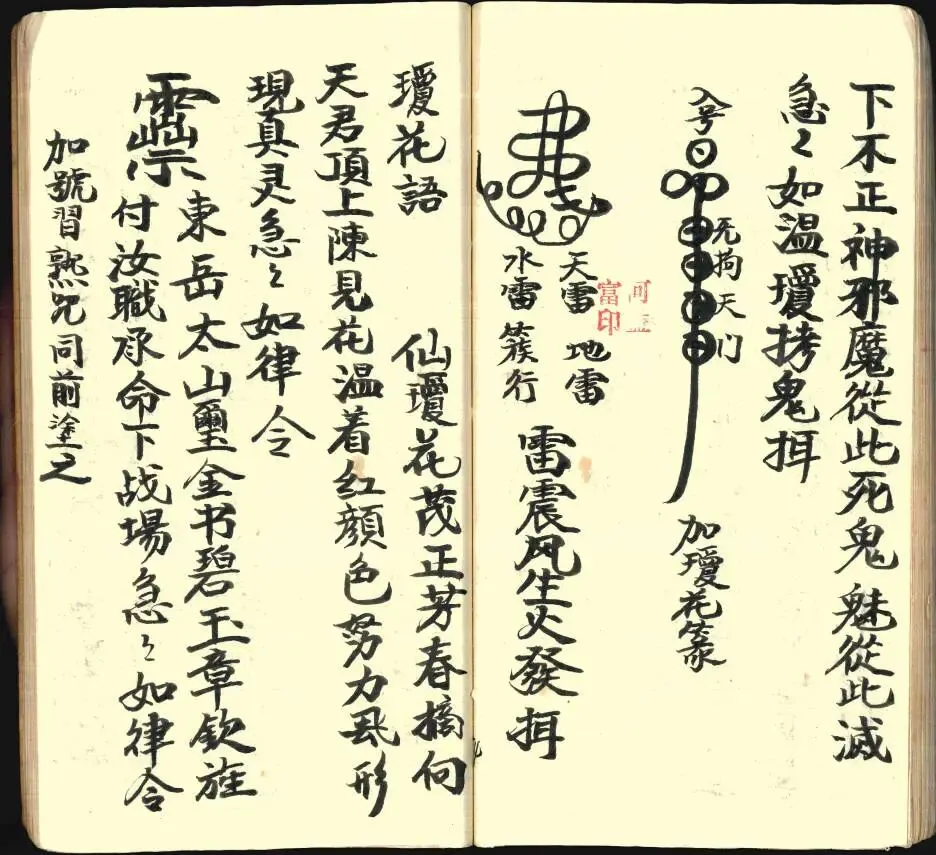 下不正神邪魔從此死鬼魅從此滅
急々如温瓊拷鬼挕
入号
无拘天门
加瓊花篆
天雷 地雷
水雷 簇行
雷震风生火發挕
瓊花語
仙瓊花茂正芳春摘向
天君頂上陳見花温着红顔色努力 形
現真灵急々如律令
東岳太山璽金书碧玉章欽旌
付汝職承命下战場急々如律令
加號習熟咒同前塗之
富印